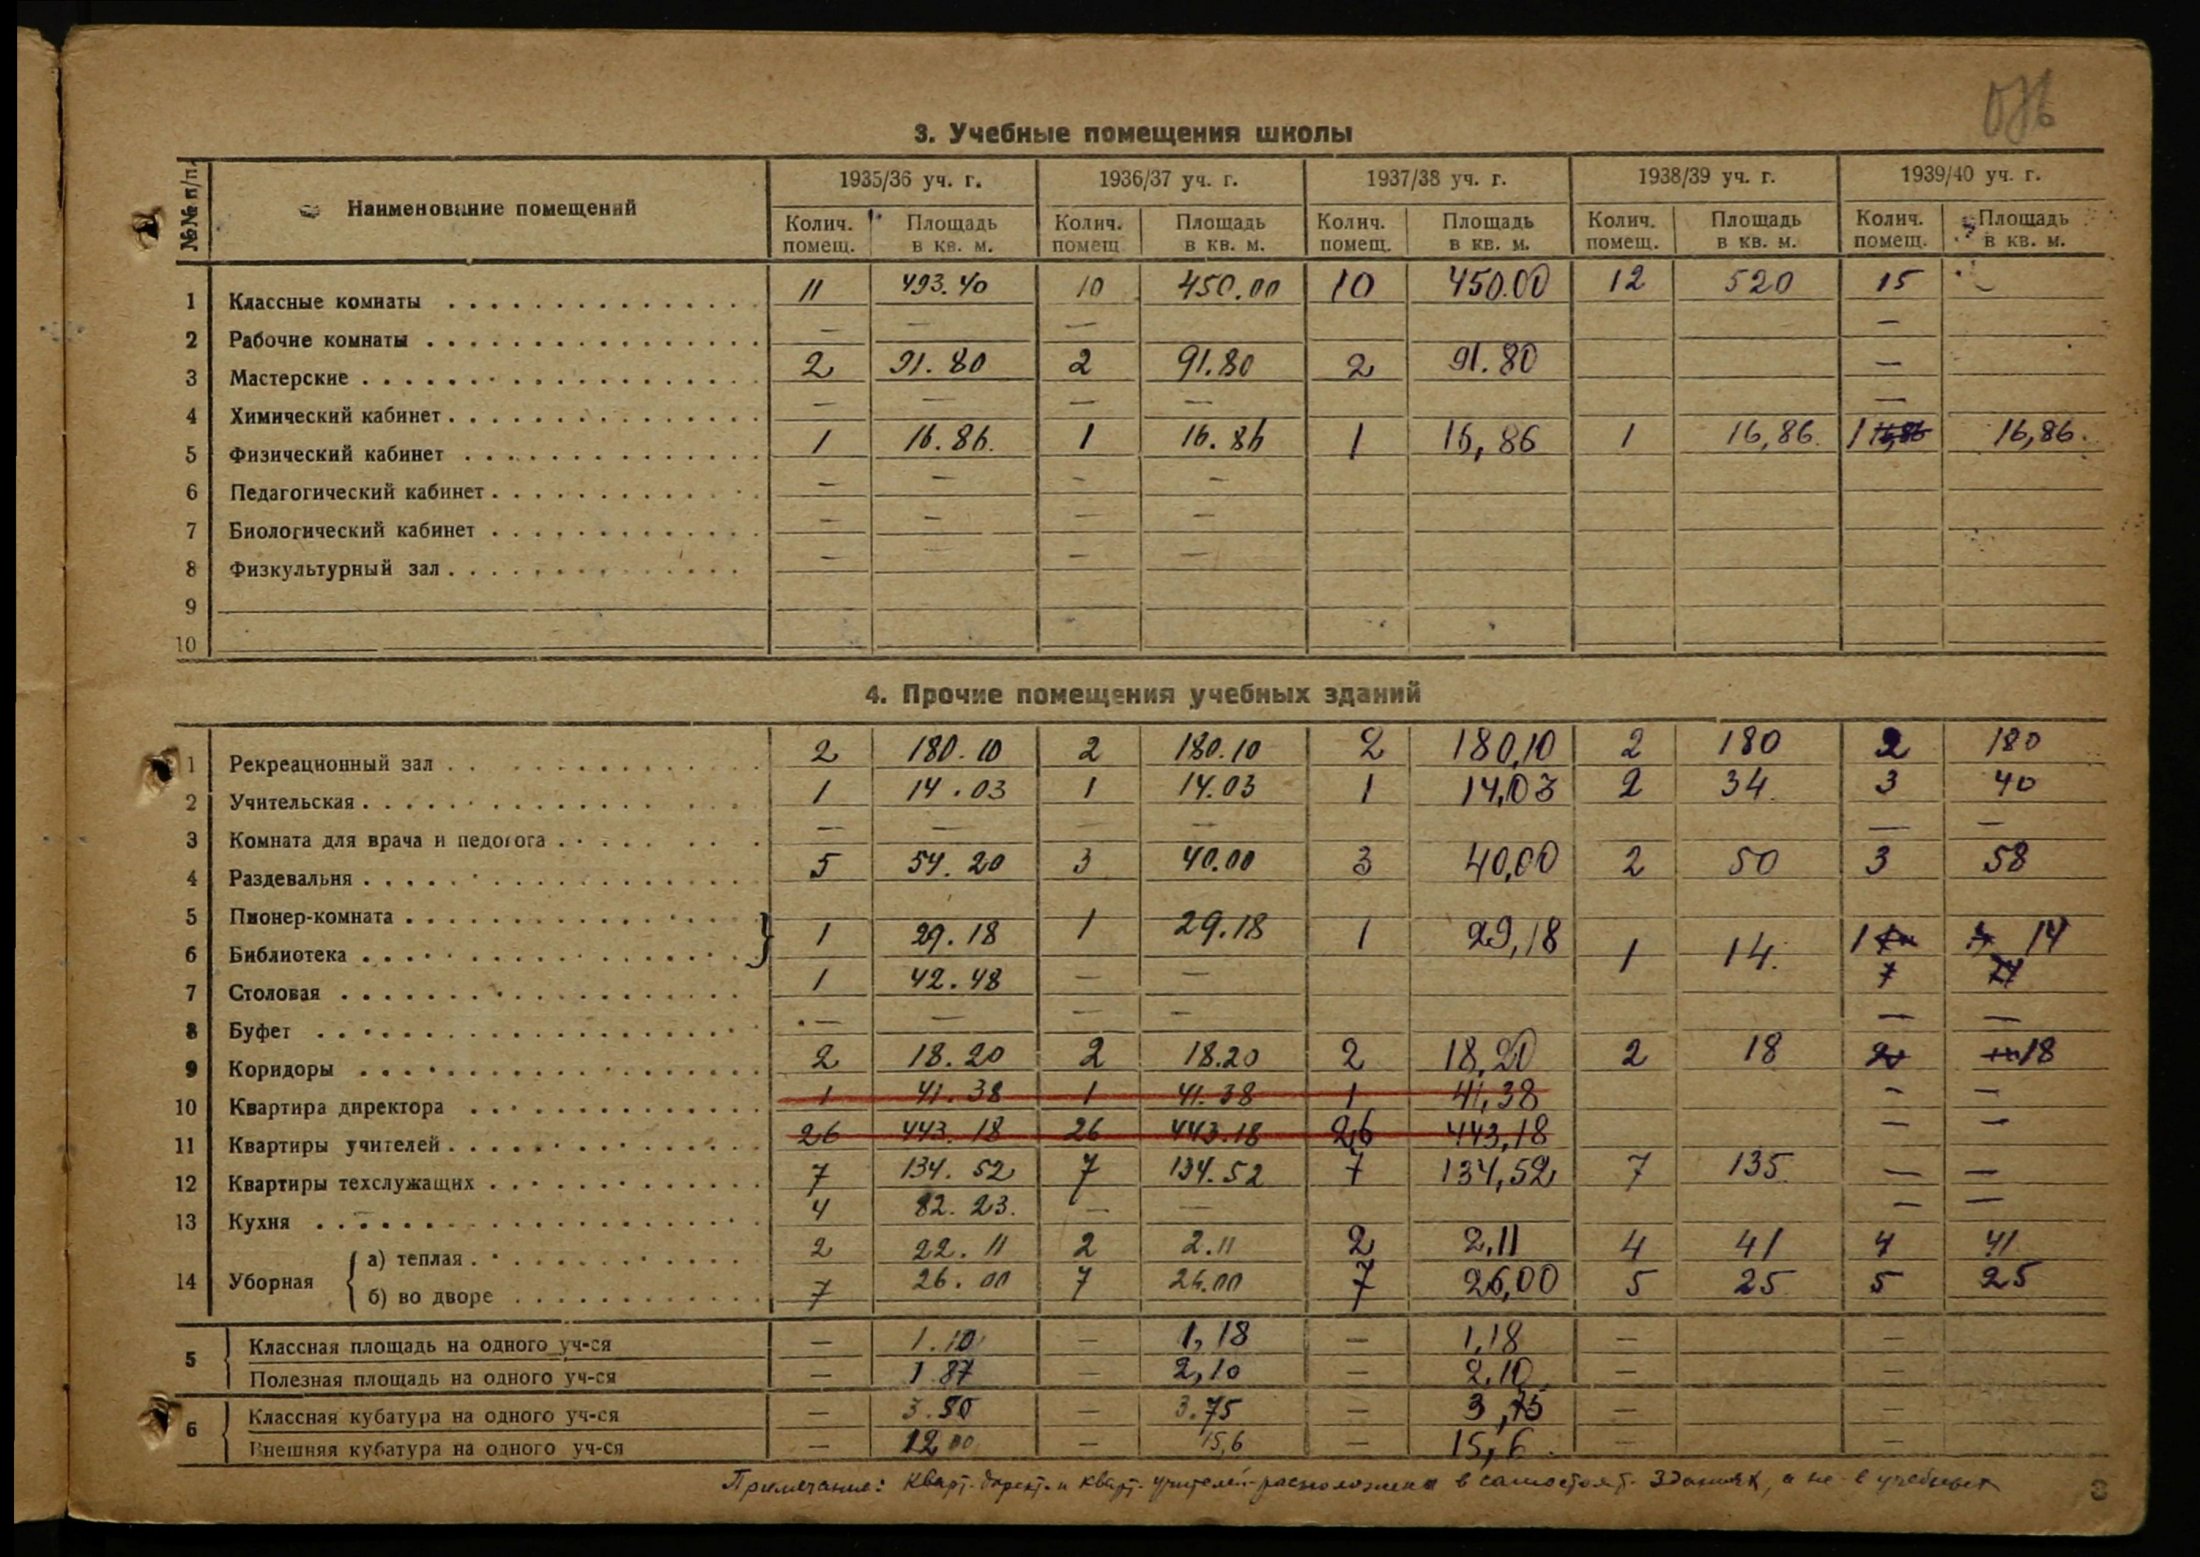 3. Учебные помещения школы
№№ п/п. Наименование помещений 1935/36 уч. г. 1936/37 уч. г. 1937/38 уч. г. 1938/39 уч. г. 1939/40 уч. г.
Колич. помещ. Площадь в кв. м. Колич. помещ Площадь в кв. м. Колич. помещ. Площадь в кв. м. Колич. помещ. Площадь в кв. м. Колич. помещ. Площадь в кв. м.
1 Классные комнаты 11 493.40 10 450.00 10 450.00 12 520 15
2 Рабочие комнаты — — — —
3 Мастерские 2 91.80 2 91.80 2 91.80 —
4 Химический кабинет — — — — —
5 Физический кабинет 1 16.86. 1 16.86 1 16,86 1 16,86. 1 16,86 16,86.
6 Педагогический кабинет — — — —
7 Биологический кабинет — — — —
8 Физкультурный зал — — —
9
10
4. Прочие помещения учебных зданий
1 Рекреационный зал 2 180.10 2 180.10 2 180,10 2 180 2 180
2 Учительская 1 14.03 1 14.03 1 14,03 2 34. 3 40
3 Комната для врача и педолога — — — — — —
4 Раздевальня 5 54.20 3 40.00 3 40,00 2 50 3 58
5 Пионер-комната
6 Библиотека 1 29.18 1 29.18 1 29,18 1 14. 1 14
7 Столовая 1 42.48 — —
8 Буфет — — — — — —
9 Коридоры 2 18.20 2 18.20 2 18,20 2 18 2 18
10 Квартира директора 1 41.38 1 41.38 1 41,38 — —
11 Квартиры учителей 26 443.18 26 443.18 26 443,18 — —
12 Квартиры техслужащих 7 134.52 7 134.52 7 134,52 7 135. — —
13 Кухня 4 82.23. — — — —
14 Уборная
а) теплая 2 22.11 2 2.11 2 2,11 4 41 4 41
б) во дворе 7 26.00 7 26.00 7 26,00 5 25 5 25
5 Классная площадь на одного уч-ся — 1.10 — 1,18 — 1,18 — —
Полезная площадь на одного уч-ся — 1.87 — 2,10 — 2,10 — —
6 Классная кубатура на одного уч-ся — 3.50 — 3.75 — 3,75 — —
Внешняя кубатура на одного уч-ся — 12 00 — 15,6 — 15,6. — —
Примечание: Кварт. директ. и кварт. учителей расположены в самостоят. зданиях, а не в учебных
3